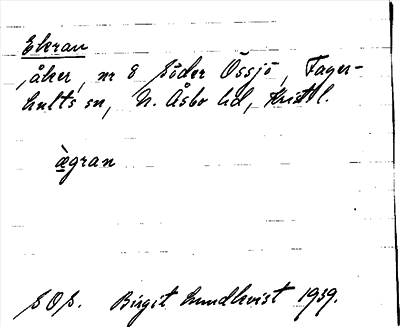 Ekran
, åker, nr 8 Söder Össjö, Fager-
hults sn, N. Åsbo hd, Krist. l.
ægran
SOS. Birgit Lundkvist 1939.